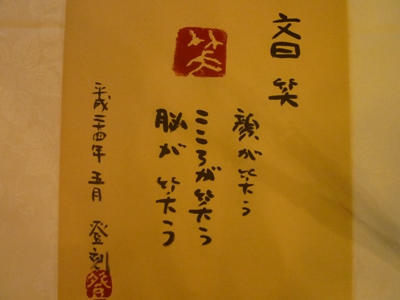 笑
顔が笑う
こころが笑う
脳が笑う
笑
平成二十四年五月 登刻
登